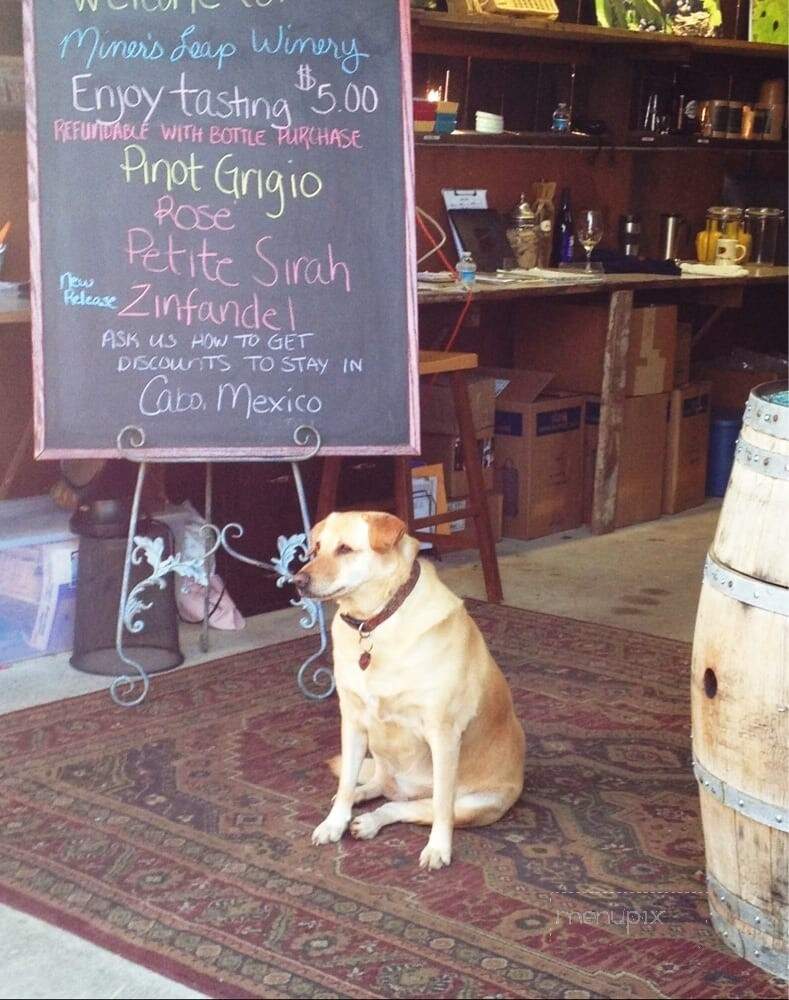 Welcome to:
Miner's Leap Winery
Enjoy tasting $5.00
REFUNDABLE WITH BOTTLE PURCHASE
Pinot Grigio
Rose
Petite Sirah
New Release Zinfandel
ASK US HOW TO GET
DISCOUNTS TO STAY IN
Cabo, Mexico
menupix